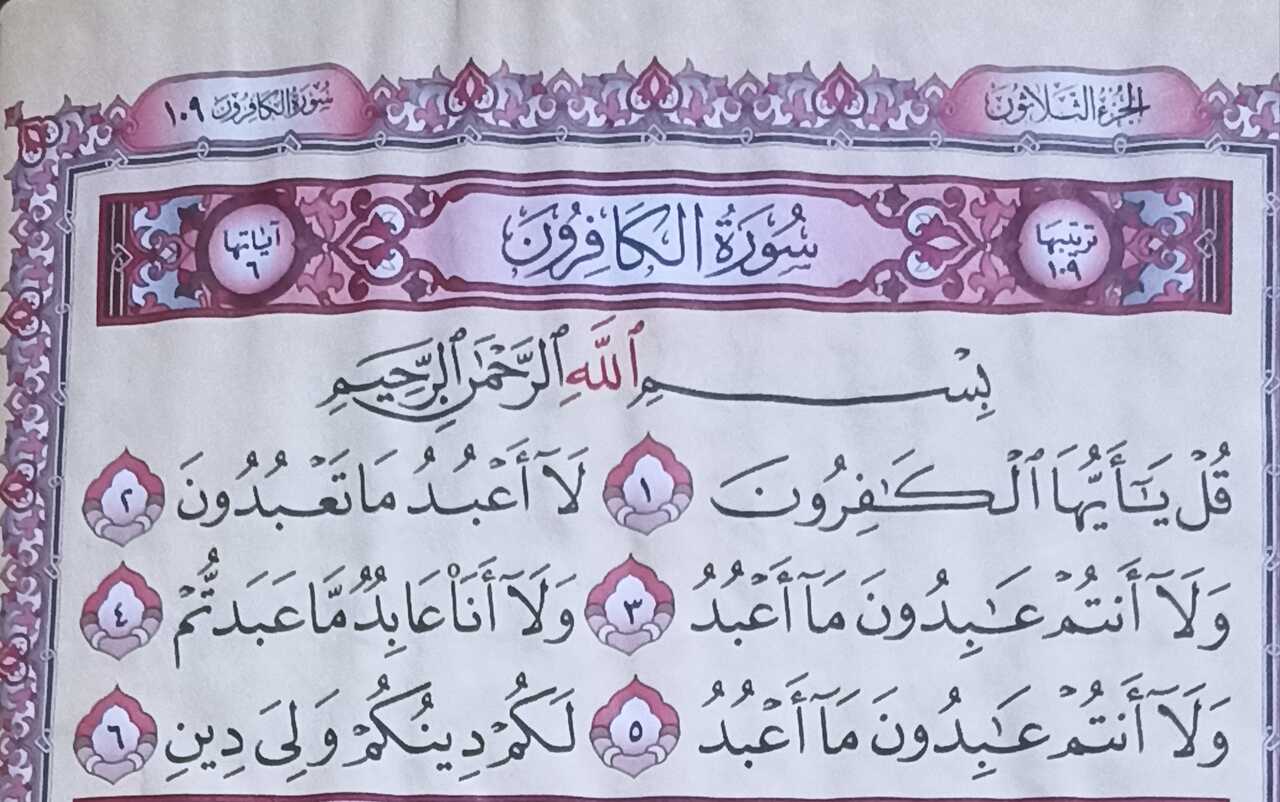 الجزء الثلاثون سورة الكافرون ١٠٩
ترتيبها ١٠٩ سُورَةُ الكَافِرُونَ آياتها ٦
بِسْمِ ٱللَّهِ ٱلرَّحْمَٰنِ ٱلرَّحِيمِ
قُلْ يَٰٓأَيُّهَا ٱلْكَٰفِرُونَ ١ لَآ أَعْبُدُ مَا تَعْبُدُونَ ٢
وَلَآ أَنتُمْ عَٰبِدُونَ مَآ أَعْبُدُ ٣ وَلَآ أَنَا۠ عَابِدٌ مَّا عَبَدتُّمْ ٤
وَلَآ أَنتُمْ عَٰبِدُونَ مَآ أَعْبُدُ ٥ لَكُمْ دِينُكُمْ وَلِىَ دِينِ ٦